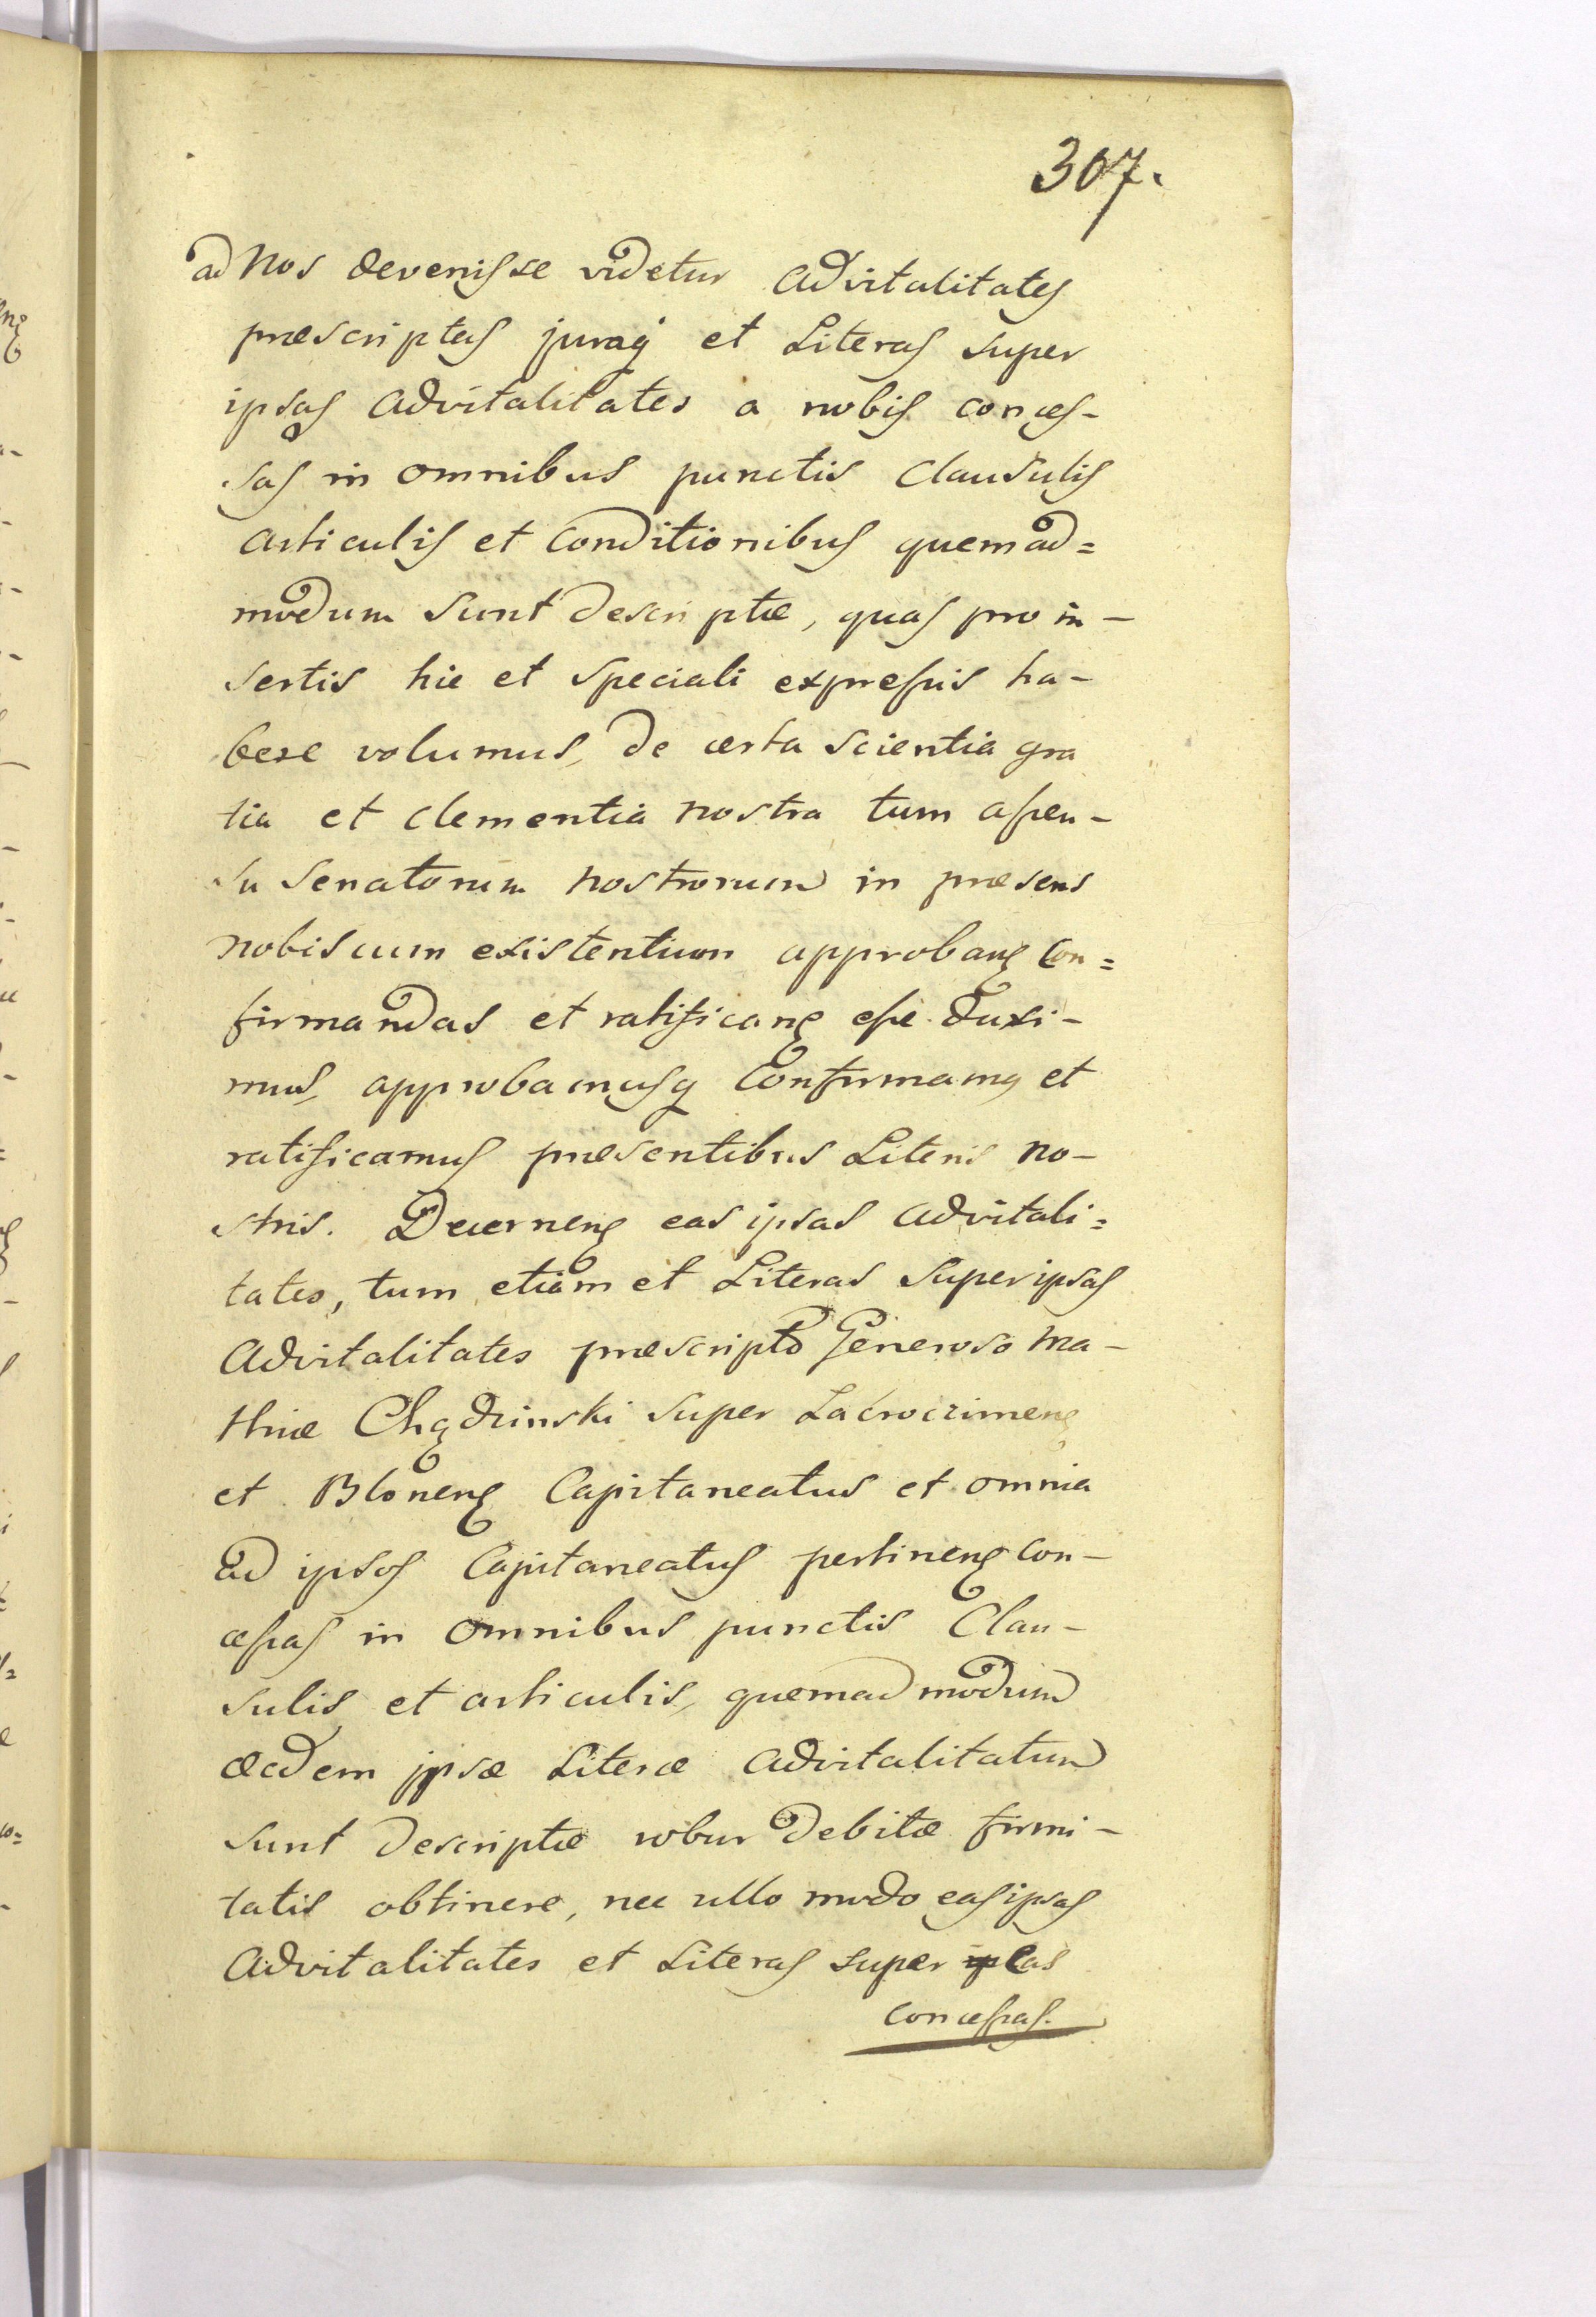 307.
ad Nos devenisse videtur Advitalitates
præscriptas juraq́ et Literas super
ipsas Advitalitates a nobis conces-
sas in omnibus punctis Clausulis
articulis et Conditionibus quemad=
modum sunt descriptæ, quas pro in-
sertis hic et speciali expressis ha-
bere volumus, de certa scientia gra
tia et Clementia nostra tum assen-
su Senatorum nostrorum in præsens
nobiscum existentium approbanꝫ Con=
firmandas et ratificanꝫ esse duxi-
mus, approbamusq Confirmamꝯ et
ratificamus præsentibus Literis no-
stris. Decernenꝫ eas ipsas Advitali=
tates, tum etiam et Literas super ipsas
Advitalitates præscripto Generoso Ma-
thiæ Chądzinski super Zacroczimenꝫ
et Blonenꝫ Capitaneatus et omnia
ad ipsos Capitaneatus pertinenꝫ con-
cessas in omnibus punctis Clau-
sulis et articulis, quemadmodum
eædem ipsæ Literæ Advitalitatum
sunt descriptæ robur debitæ firmi-
tatis obtinere, nec ullo modo eas ipsas
Advitalitates et Literas super eas
concessas.